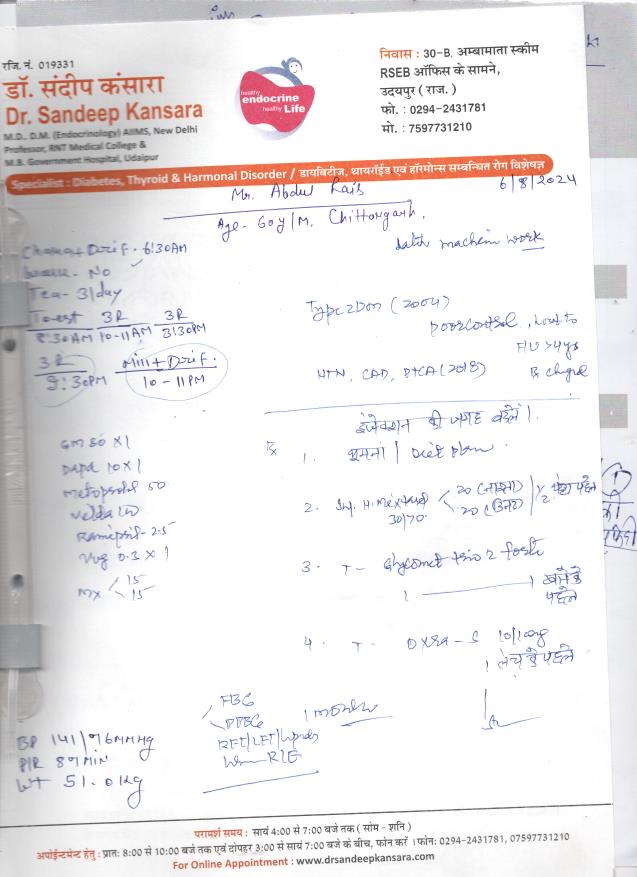 रजि. नं. 019331
डॉ. संदीप कंसारा
Dr. Sandeep Kansara
M.D., D.M. (Endocrinology) AIIMS, New Delhi
Professor, RNT Medical College &
M.B. Government Hospital, Udaipur
healthy
endocrine
healthy Life
निवास : 30-B, अम्बामाता स्कीम
RSEB ऑफिस के सामने,
उदयपुर ( राज. )
फो. : 0294-2431781
मो. : 7597731210
Specialist : Diabetes, Thyroid & Harmonal Disorder / डायबिटीज, थायरॉईड एवं हॉरमोन्स सम्बन्धित रोग विशेषज्ञ
Mr. Abdul Rais
6/8/2024
Age - 60y/M. Chittorgarh.
work
6:30AM
No
Tea - 3/day
3R 3R
8:30AM 10-11AM 3:30PM
3R
9:30PM 10-11PM
Type 2 Dm (2004)
poor control
HTN, CAD, PTCA (2018)
इंजेक्शन की जगह बदलें।
Rx
1. घूमना / Diet plan.
2. Inj. H. Mixtard 20 (नाश्ता)
30/70 20 (डिनर)
3. T - Glycomet trio 2 forte
1 खाने से पहले
4. T - Oxra - S 10/100mg
1 लंच से पहले
GM 80 x 1
Dapa 10 x 1
Metoprolol 50
Ramipril - 2.5
Vog 0.3 x 1
MX 15
15
FBG
PPBG 1 month
RFT/LFT/Lipids
Urine R/E
BP 141/96MMHg
P/R 89MIN
WT 51.0Kg
परामर्श समय : सायं 4:00 से 7:00 बजे तक ( सोम - शनि )
अपोईन्टमेन्ट हेतु : प्रात: 8:00 से 10:00 बजे तक एवं दोपहर 3:00 से सायं 7:00 बजे के बीच, फोन करें । फोन: 0294-2431781, 07597731210
For Online Appointment : www.drsandeepkansara.com